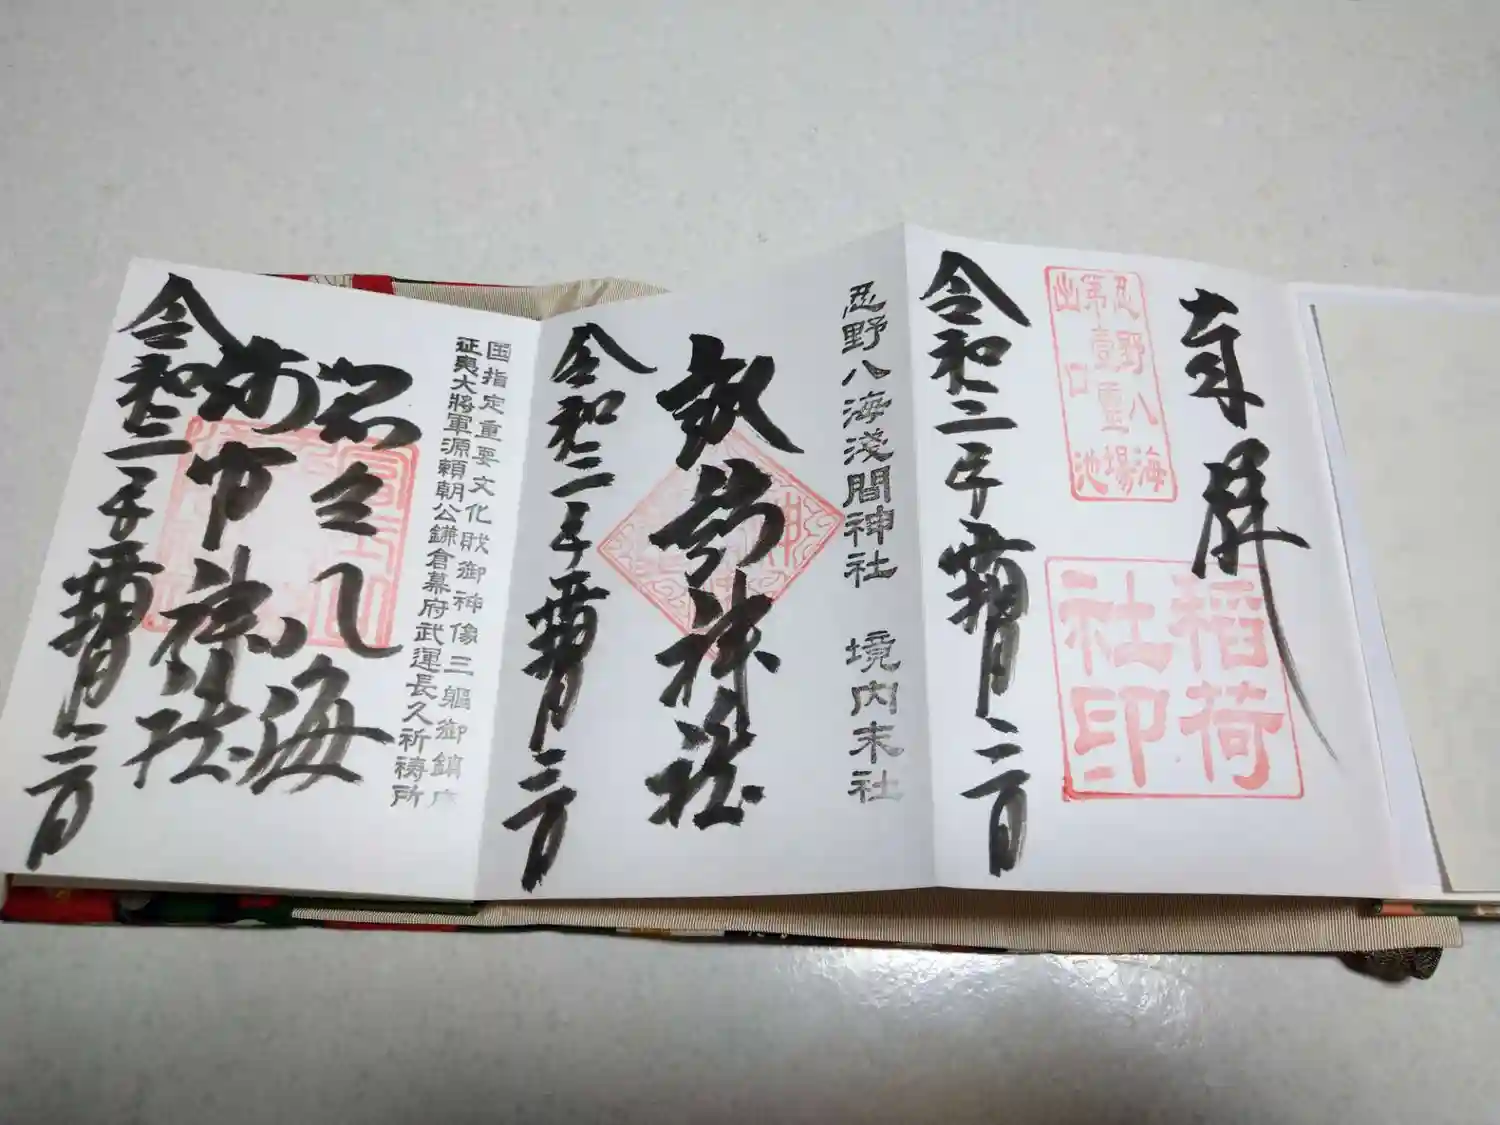 奉拝
忍野八海
第壹霊場
出口池
稲荷
社印
令和二年霜月二日
忍野八海淺間神社 境内末社
神社
令和二年霜月二日
国指定重要文化財御神像三軀御鎮座
征夷大将軍源頼朝公鎌倉幕府武運長久祈祷所
八海
浅間神社
令和二年霜月二日